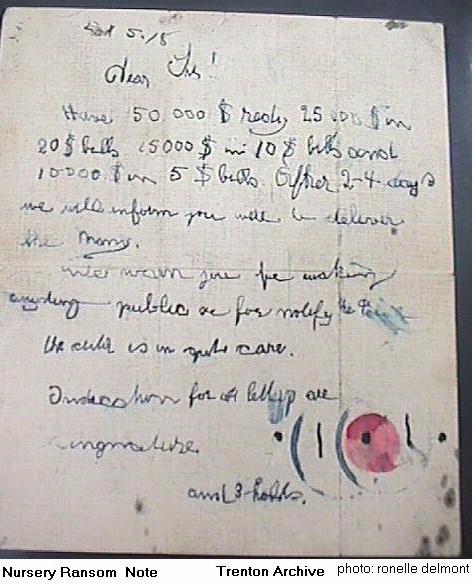 Dear Sir!
Have 50.000 $ redy 25.000 $ in
20 $ bills 15000 $ in 10 $ bills and
10000 $ in 5 $ bills. After 2-4 days
we will inform you were to deliver
the Mony.
We warn you for making
anyding public or for notify the
the child is in gute care.
Indication for all letters are
singnature
and 3 holds.
Nursery Ransom Note
Trenton Archive
photo: ronelle delmont